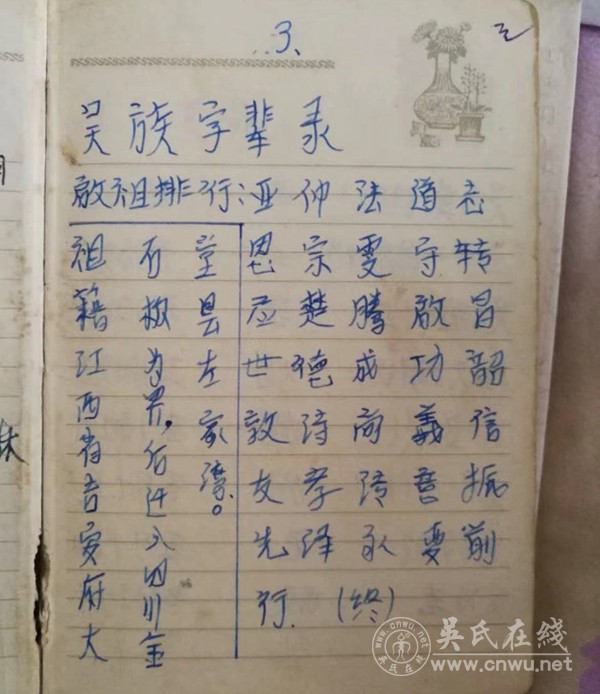 3、
吴族字辈录
啟祖排行：亚仲法道志
思宗雯守转
应楚腾啟昌
世德成功韶
敦诗尚義信
友孝诗書振
先泽永雯前
行．（终）
祖籍江西省吉安府大
石板为界，后迁入四川金
堂县左家湾。
吴氏在线
www.cnwu.net